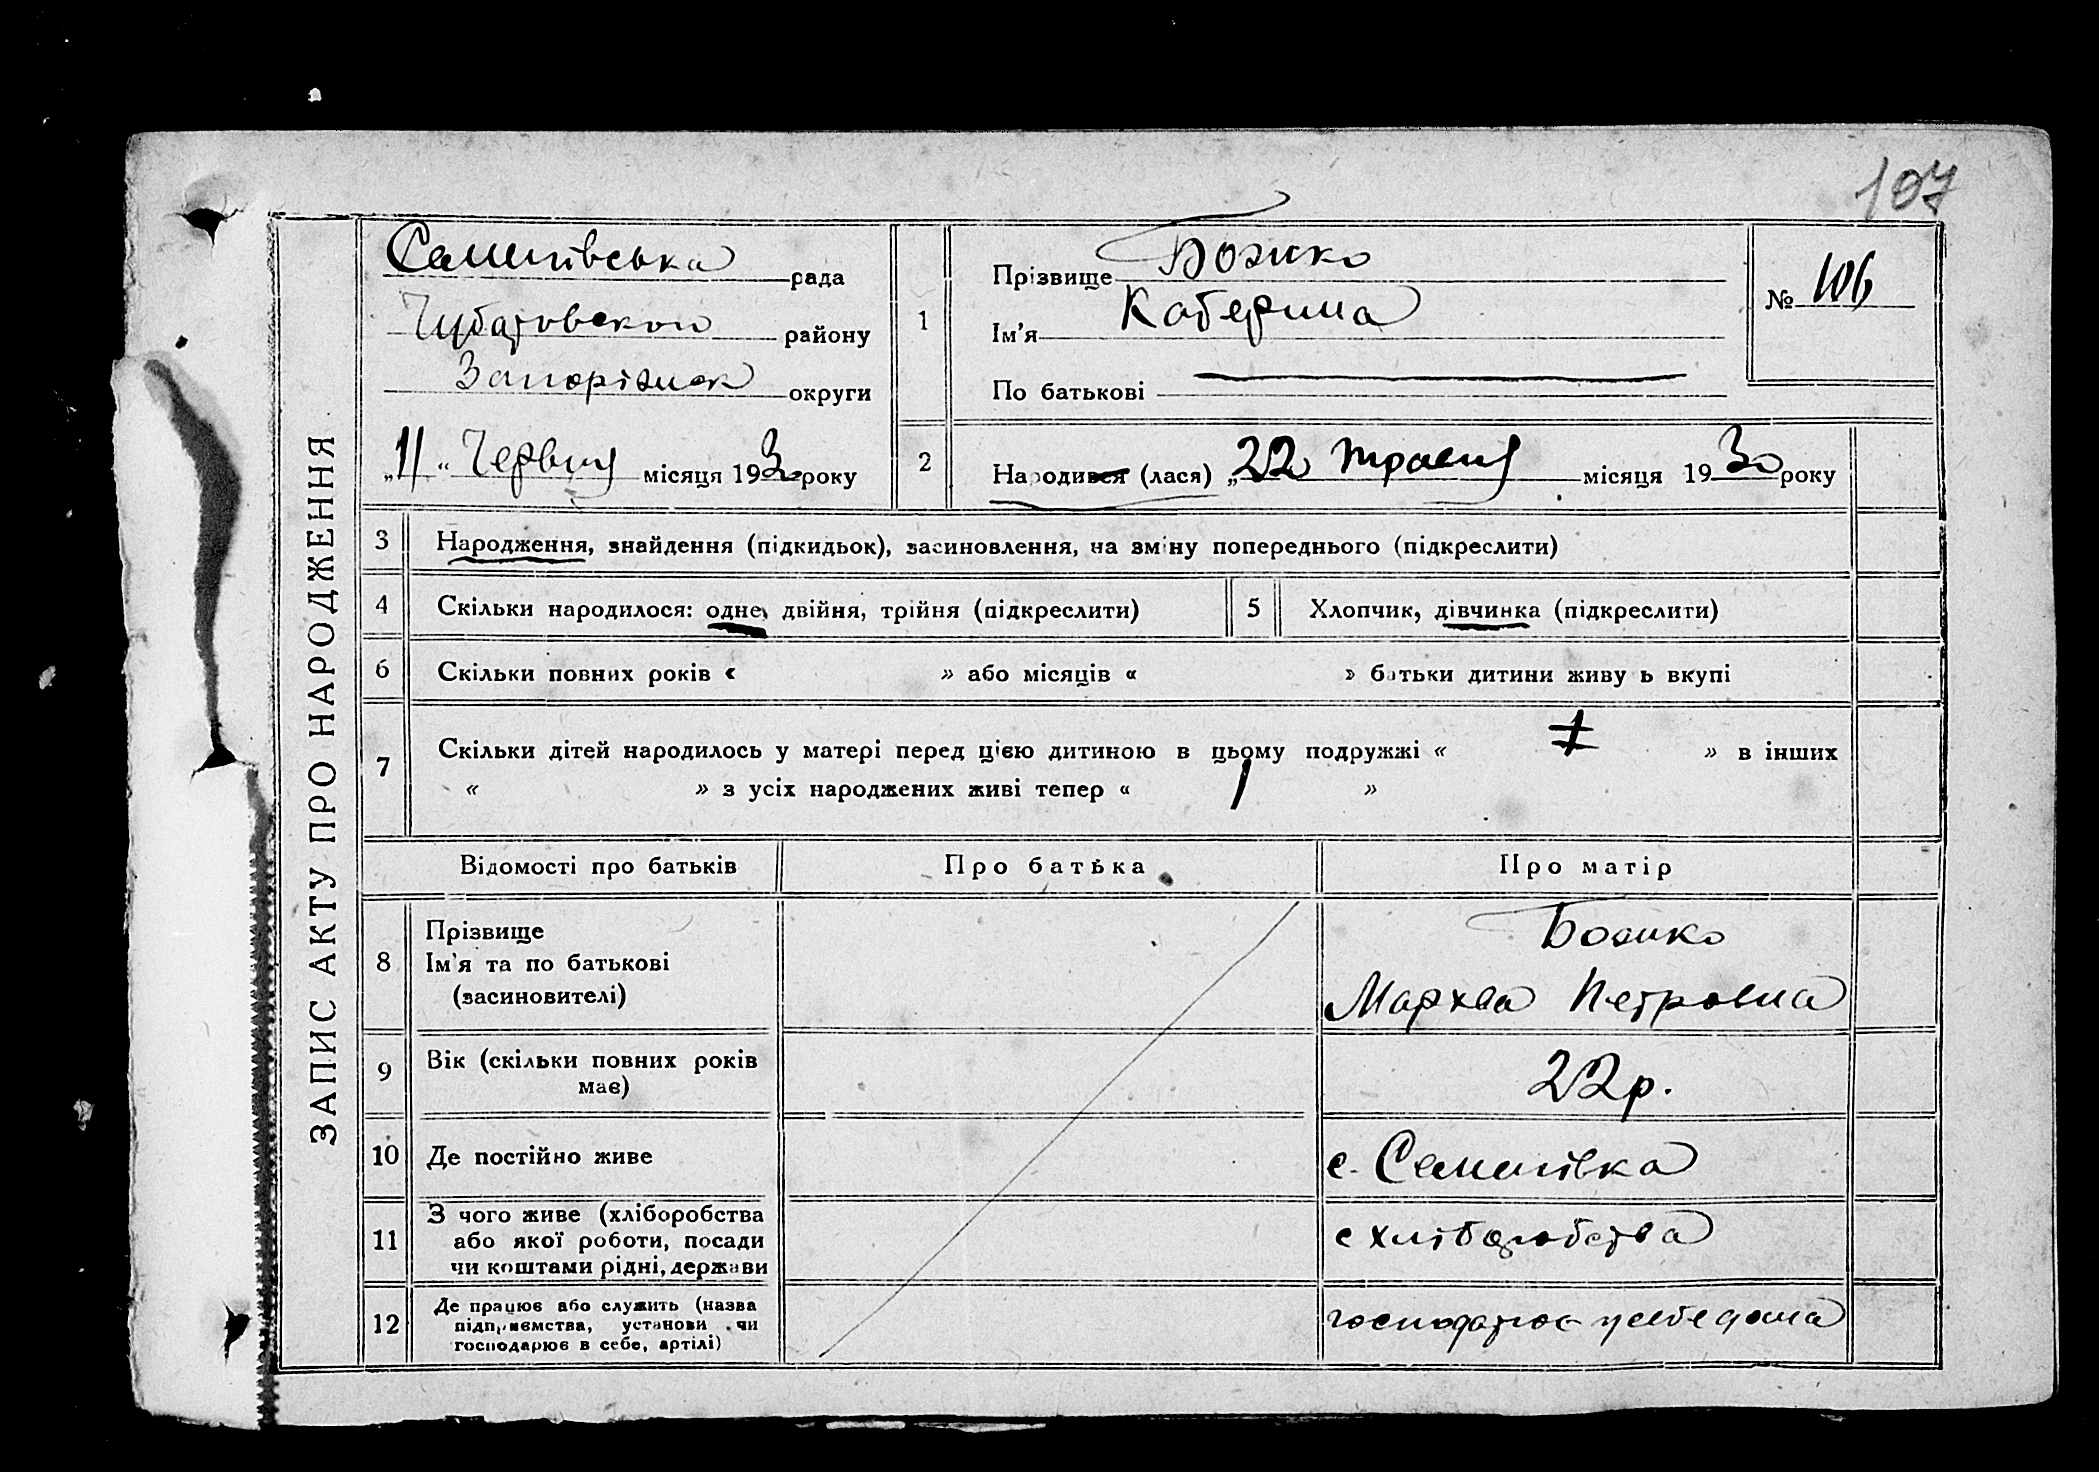 107
Семенівська рада
Чубарівского району
Запоріжск округи
„11“ Червня місяця 1930 року
1
Прізвище Божко
Ім'я Катерина
По батькові
№ 106
2
Народився (лася) „22 травня місяця 1930 року
ЗАПИС АКТУ ПРО НАРОДЖЕННЯ
3 Народження, знайдення (підкидьок), засиновлення, на зміну попереднього (підкреслити)
4 Скільки народилося: одне, двійня, трійня (підкреслити) 5 Хлопчик, дівчинка (підкреслити)
6 Скільки повних років « » або місяців « » батьки дитини живуть вкупі
7 Скільки дітей народилось у матері перед цією дитиною в цьому подружжі « » в інших
« » з усіх народжених живі тепер « 1 »
Відомості про батьків Про батька Про матір
8 Прізвище
Ім'я та по батькові
(засиновителі)
Божко
Мархва Петровна
9 Вік (скільки повних років
має)
22 р.
10 Де постійно живе с. Семенівка
11 З чого живе (хліборобства
або якої роботи, посади
чи коштами рідні, держави
с хліборобства
12 Де працює або служить (назва
підприємства, установи чи
господарює в себе, артілі)
господарює у себе дома